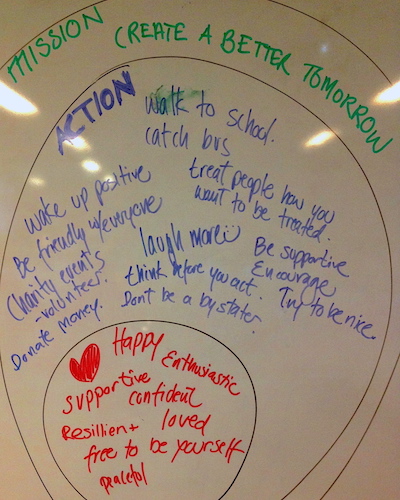 MISSION CREATE A BETTER TOMORROW
ACTION
walk to school.
catch bus
treat people how you
want to be treated.
wake up positive
Be friendly w/everyone
Charity events
-volunteer.
Donate money.
laugh more:)
think before you act.
Don't be a bystater.
Be supportive
Encourage
Try to be nice.
Happy
Enthusiastic
supportive
confident
Resillient
loved
free to be yourself
peaceful